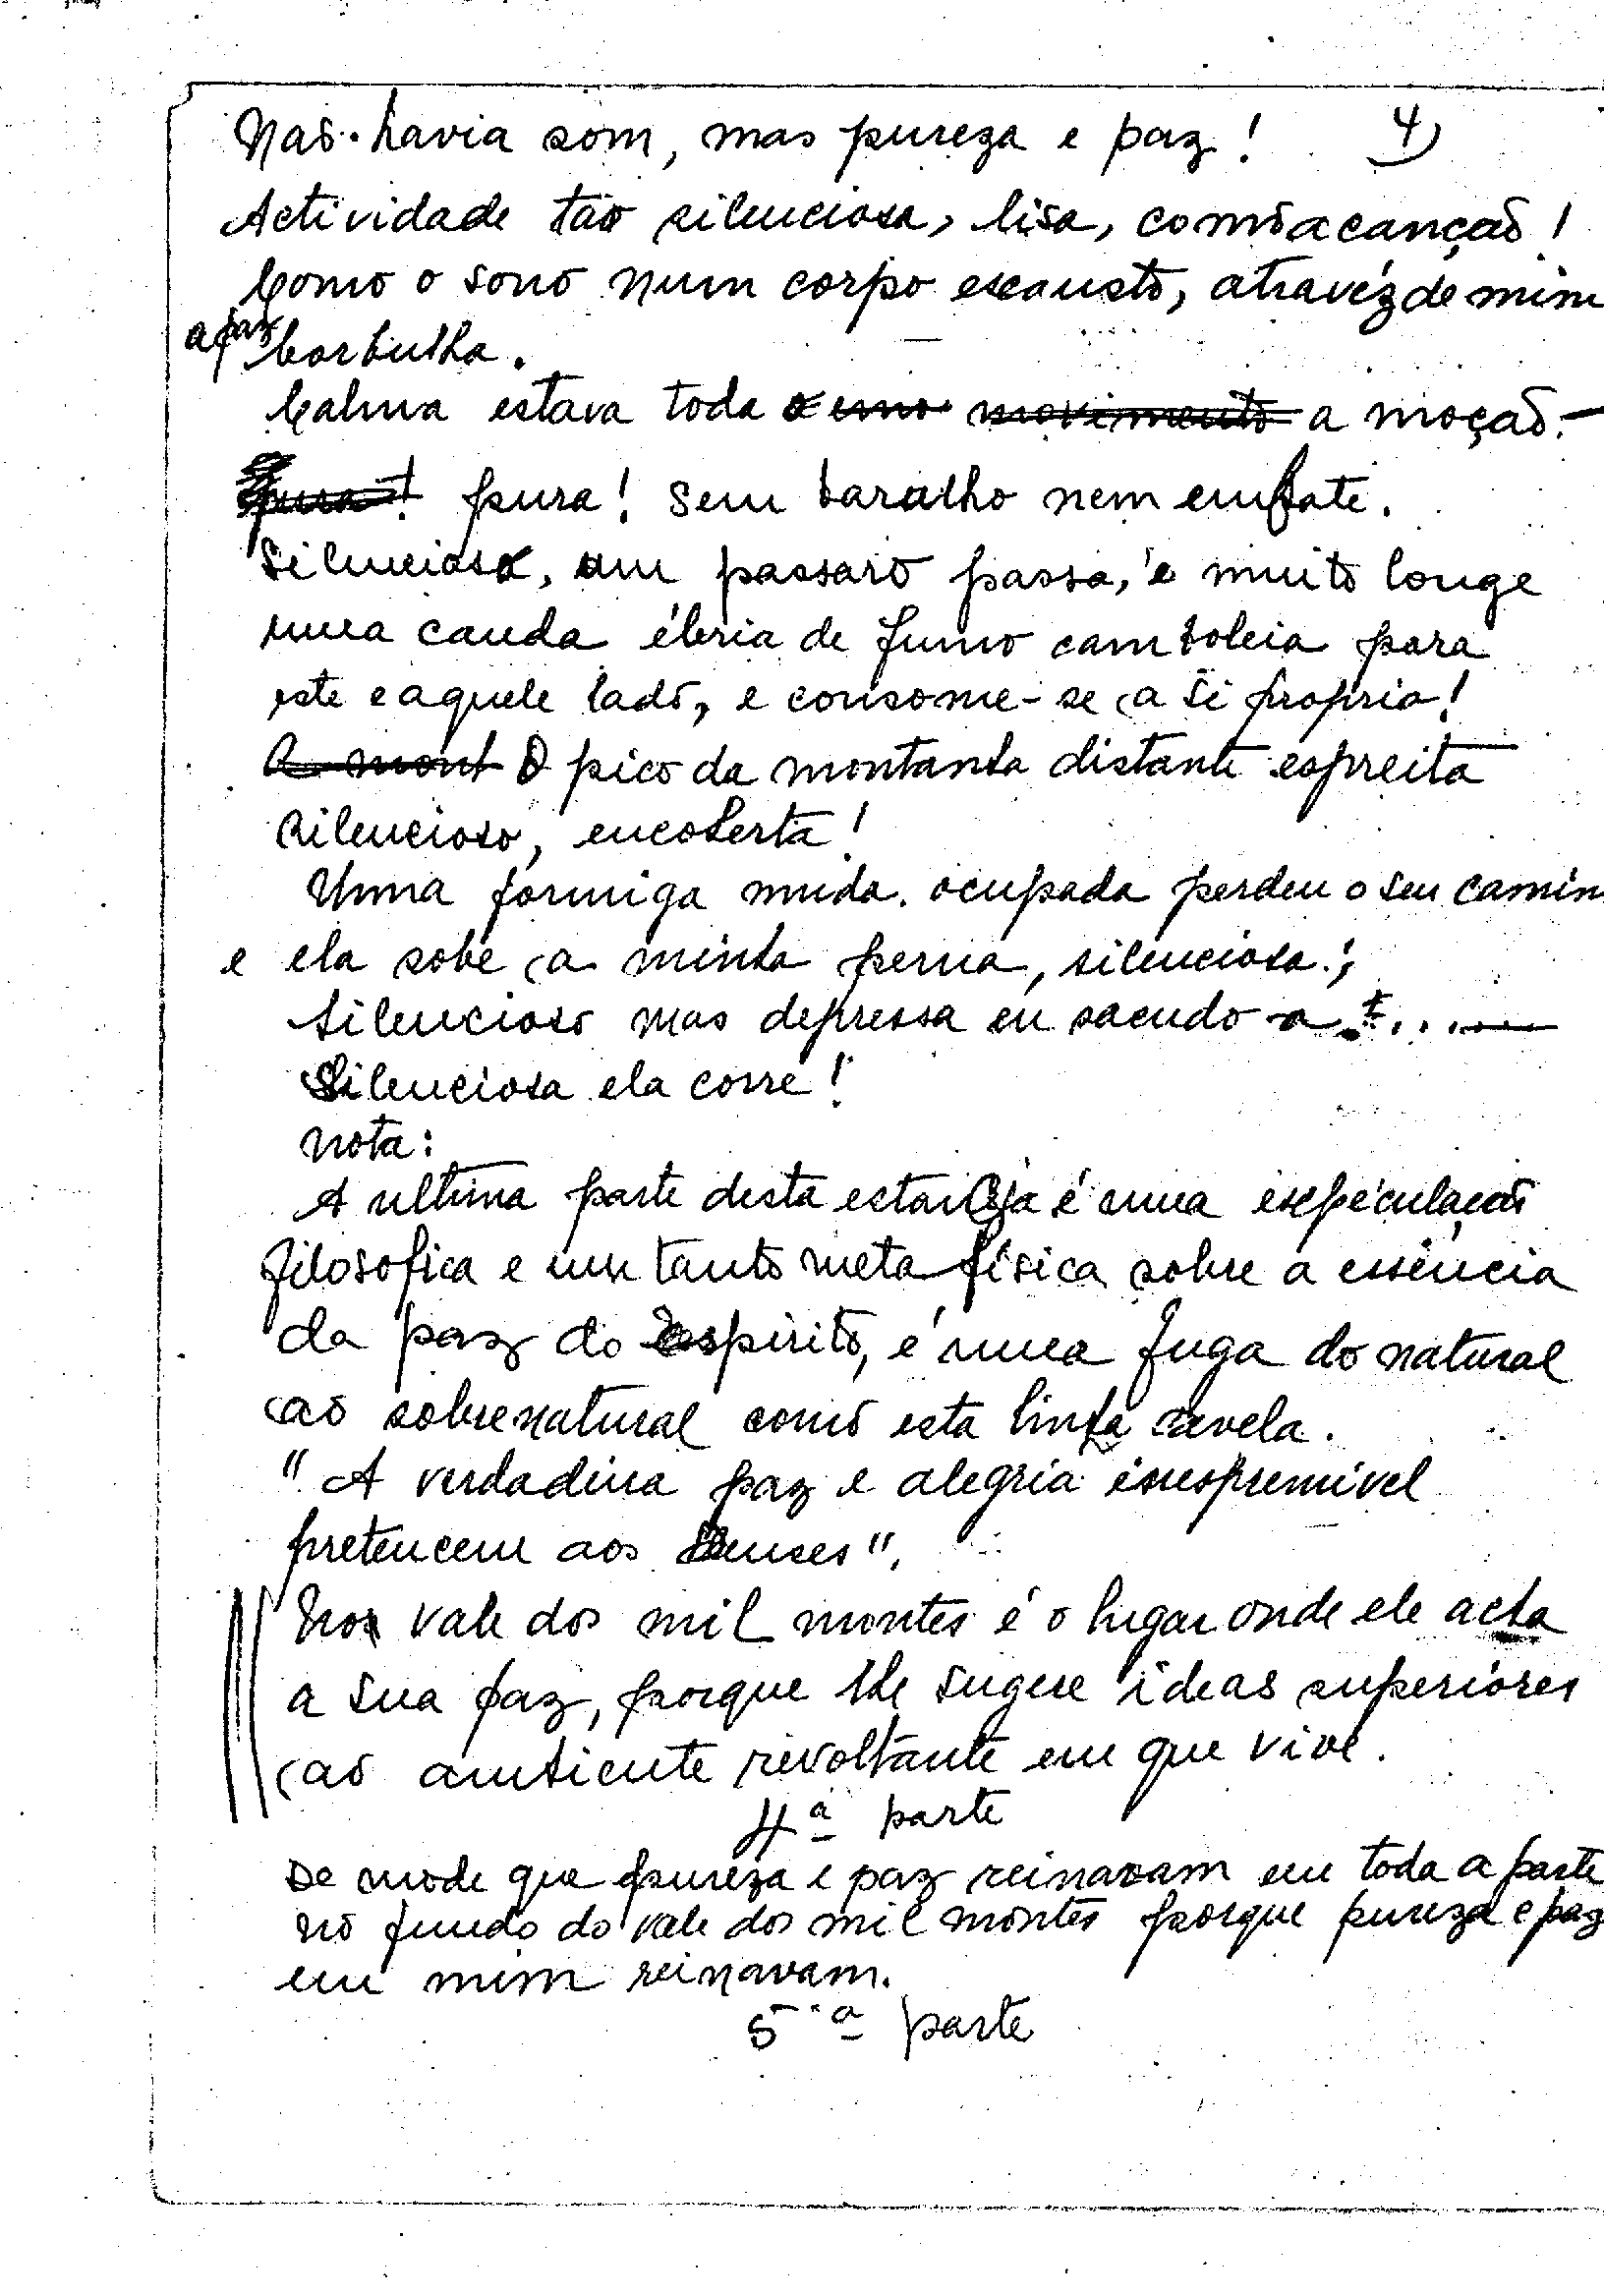 Não havia som, mas pureza e paz! 4)
Actividade tão silenciosa, lisa, como a canção!
Como o sono num corpo escausto, atravéz de mim
a paz borbulha.
Calma estava toda o movimento a moção.
pura! pura! Sem barulho nem embate.
Silencioso, um passaro passa, e muito longe
uma cauda éberia de fumo camboleia para
este e aquele lado, e consome-se a si propria!
A mont O pico da montanha distante espreita
silencioso, encoberta!
Uma formiga muda. ocupada perdeu o seu camin
e ela sobe a minha perna, silenciosa.;
Silencioso mas depressa eu sacudo-a.....
Silenciosa ela corre!
Nota:
A ultima parte desta estancia é uma espéculação
filosofica e um tanto metafísica sobre a essência
da paz do Espirito, é uma fuga do natural
ao sobrenatural como esta linha revela.
"A verdadeira paz e alegria inespremivel
pretencem aos Deuses".
No vale dos mil montes é o lugar onde ele acha
a sua paz, porque lhe sugere ideas superiores
ao ambiente revoltante em que vive.
4ª parte
De mode que pureza e paz reinavam em toda a parte
no fundo do vale dos mil montes porque pureza e paz
em mim reinavam.
5ª parte